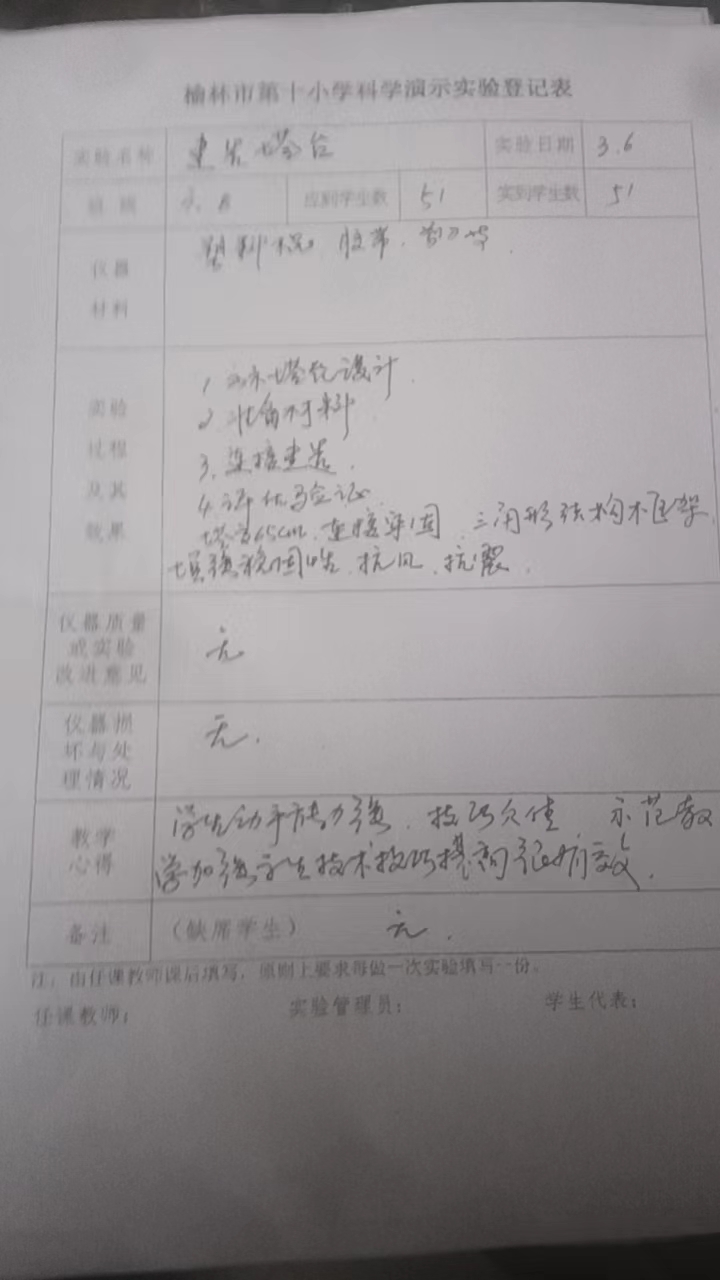 榆林市第十小学科学演示实验登记表
实验名称 建造塔台 实验日期 3.6
班级 应到学生数 51 实到学生数 51
塑料棍 胶带
仪器
材料
1 塔台设计
2 准备材料
3. 连接建造.
4. 评估验证
塔高65cm. 连接牢固 三角形结构框架
增强稳固性. 抗风. 抗震.
实验
过程
及其
效果
仪器质量
或实验
改进意见
无
仪器损
坏与处
理情况
无.
教学
心得
学生动手能力强. 技巧欠佳 示范教
学加强学生技术技巧提高很有效.
备注 (缺席学生) 无.
注:由任课教师课后填写,原则上要求每做一次实验填写一份。
任课教师: 实验管理员: 学生代表: